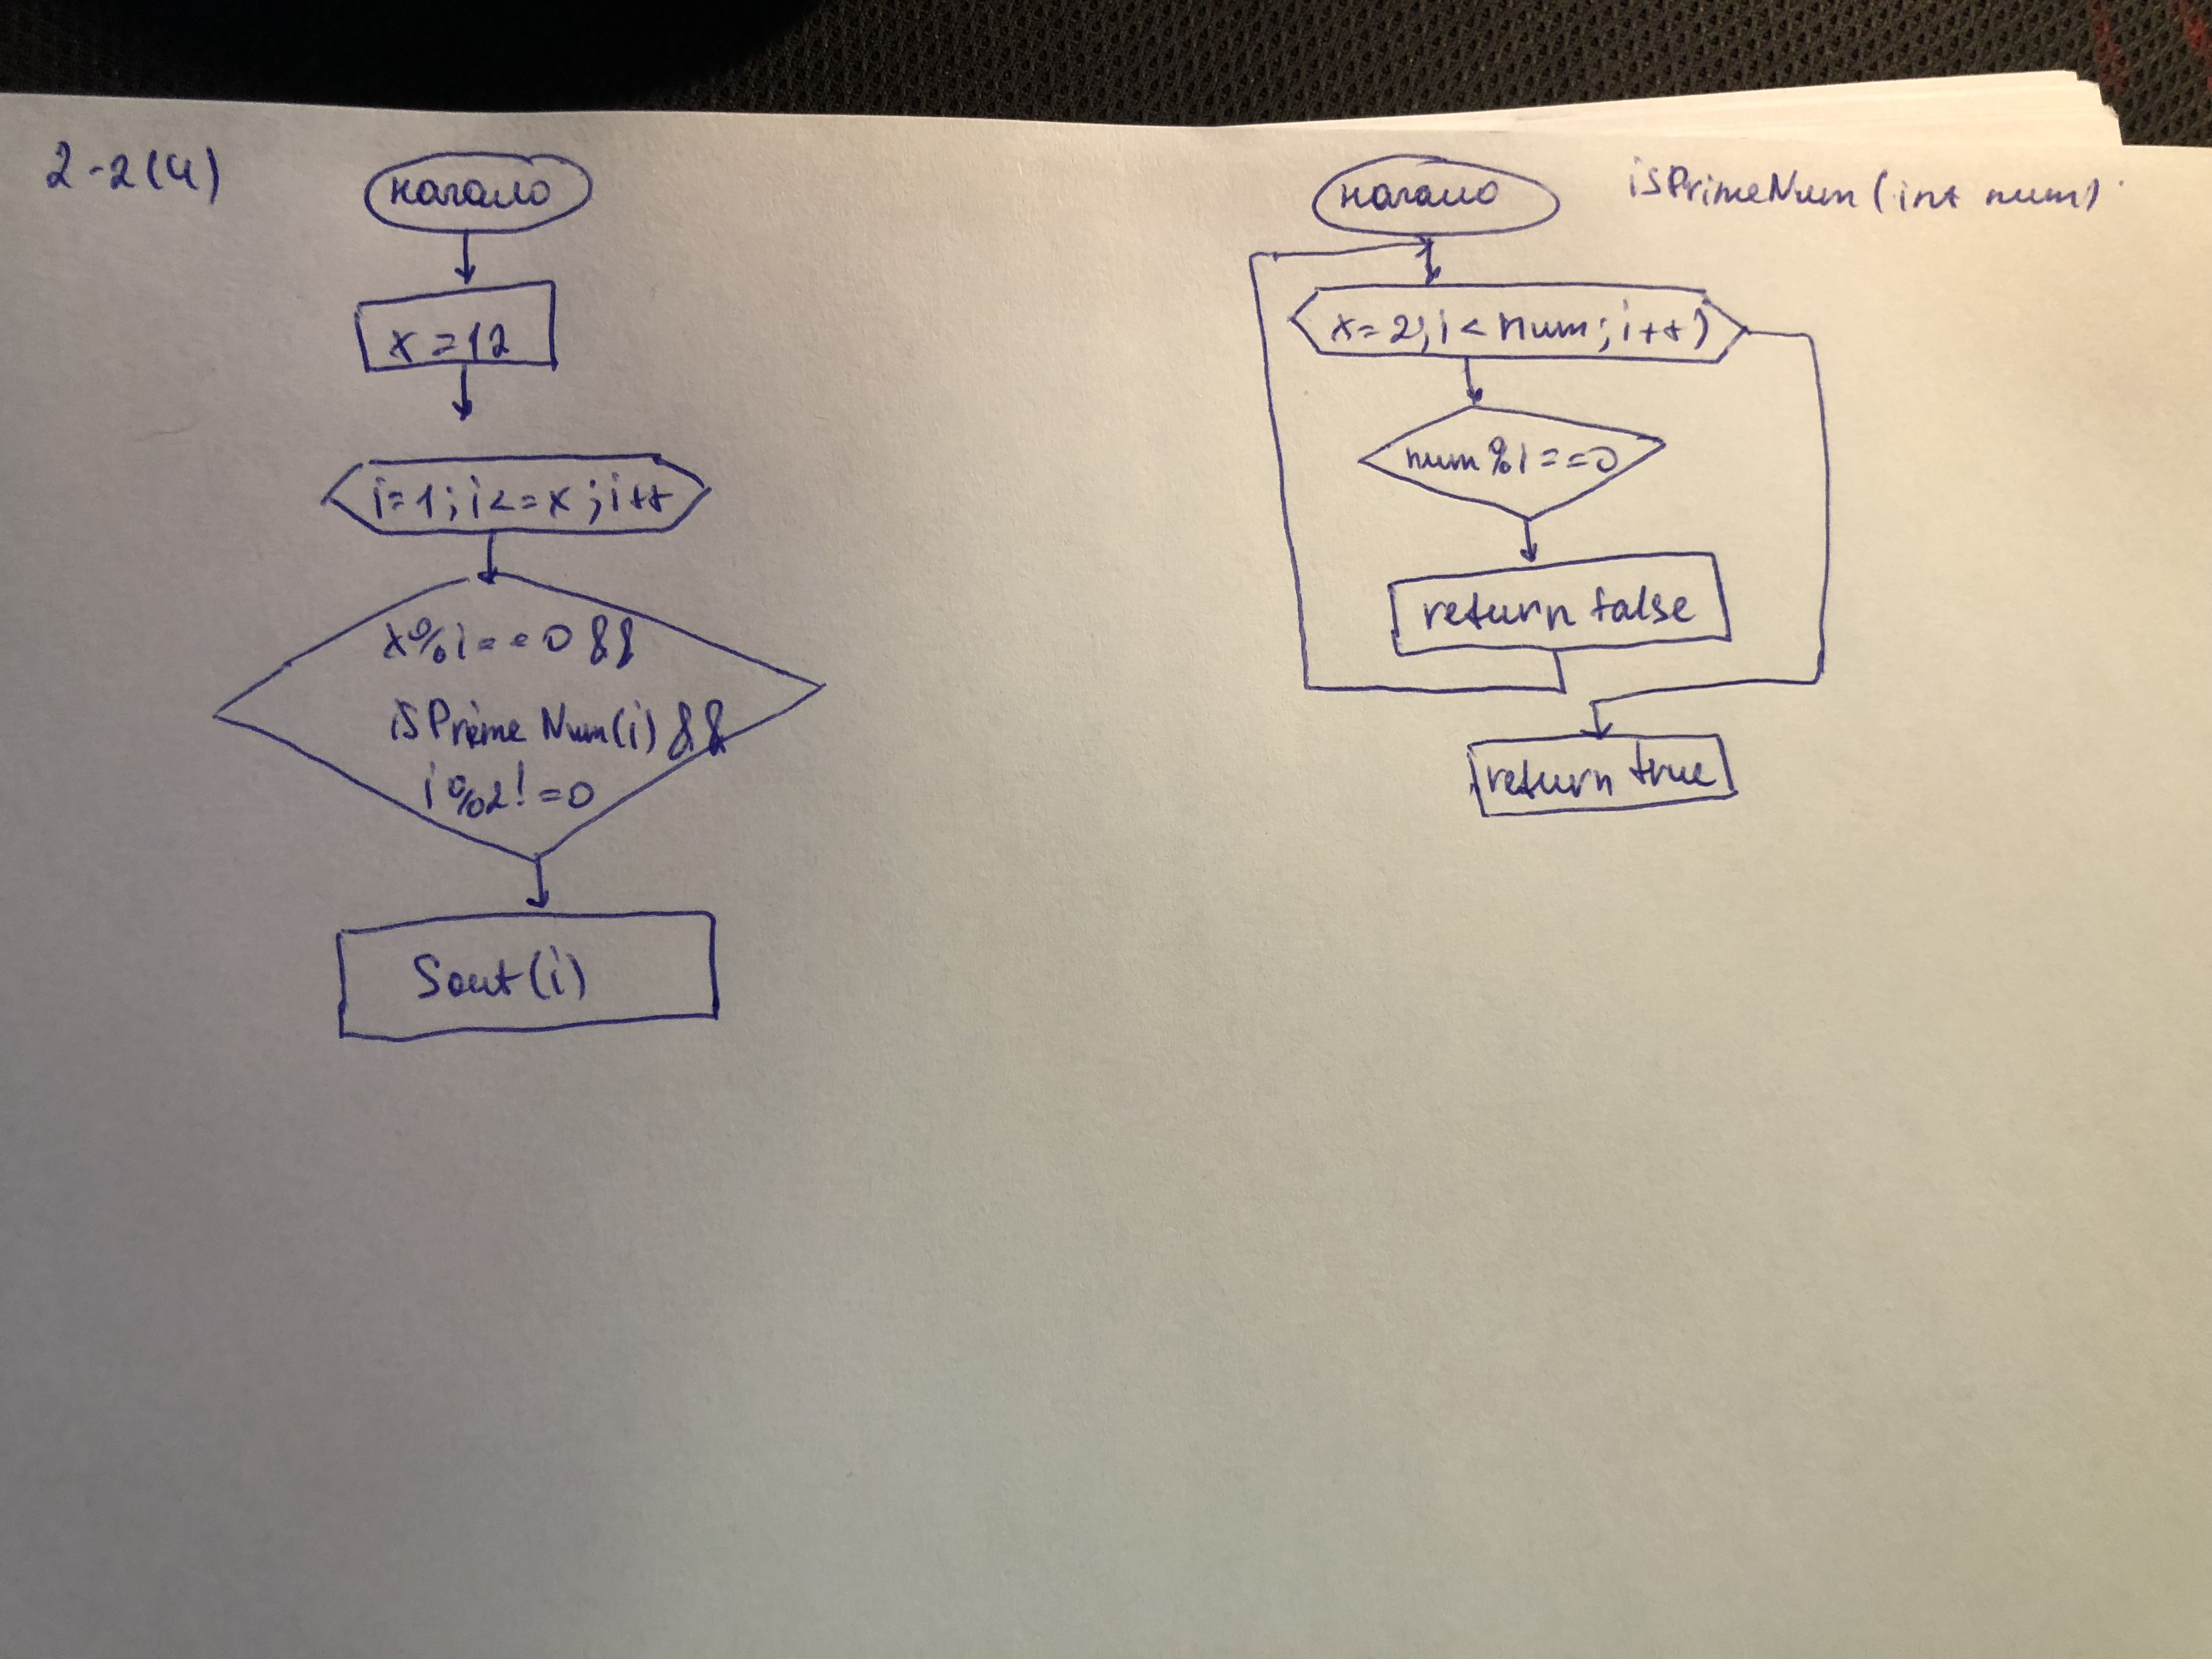 2-2(4)
начало
x=12
i=1; i<=x; i++
x%i==0 &&
isPrimeNum(i) &&
i%2!=0
Sout(i)
isPrimeNum(int num)
начало
x=2; i<num; i++)
num%i==0
return false
return true